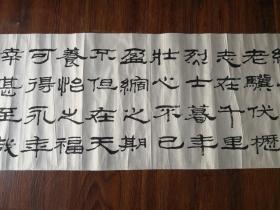 老驥伏櫪
志在千里
烈士暮年
壯心不已
盈縮之期
不但在天
養怡之福
可得永年
幸甚至哉